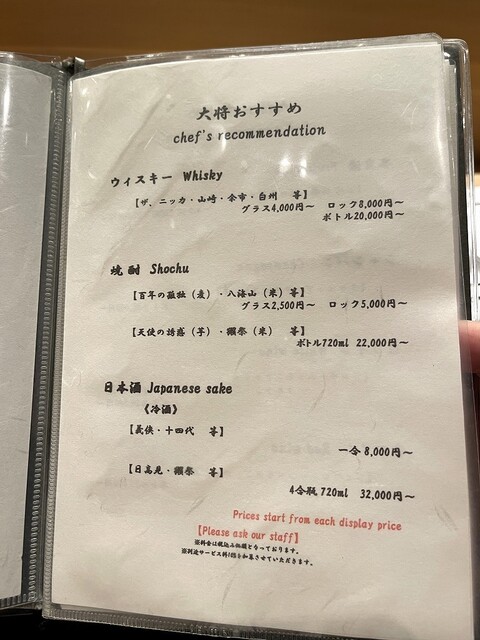 大将おすすめ
chef's recommendation
ウィスキー Whisky
【ザ、ニッカ・山崎・余市・白州 等】
グラス4,000円～ ロック8,000円～
ボトル20,000円～
焼酎 Shochu
【百年の孤独（麦）・八海山（米）等】
グラス2,500円～ ロック5,000円～
【天使の誘惑（芋）・獺祭（米） 等】
ボトル720ml 22,000円～
日本酒 Japanese sake
《冷酒》
【義侠・十四代 等】
一合 8,000円～
【日高見・獺祭 等】
4合瓶 720ml 32,000円～
Prices start from each display price
【Please ask our staff】
※料金は税込み価額となっております。
※別途サービス料10%を加算させていただきます。